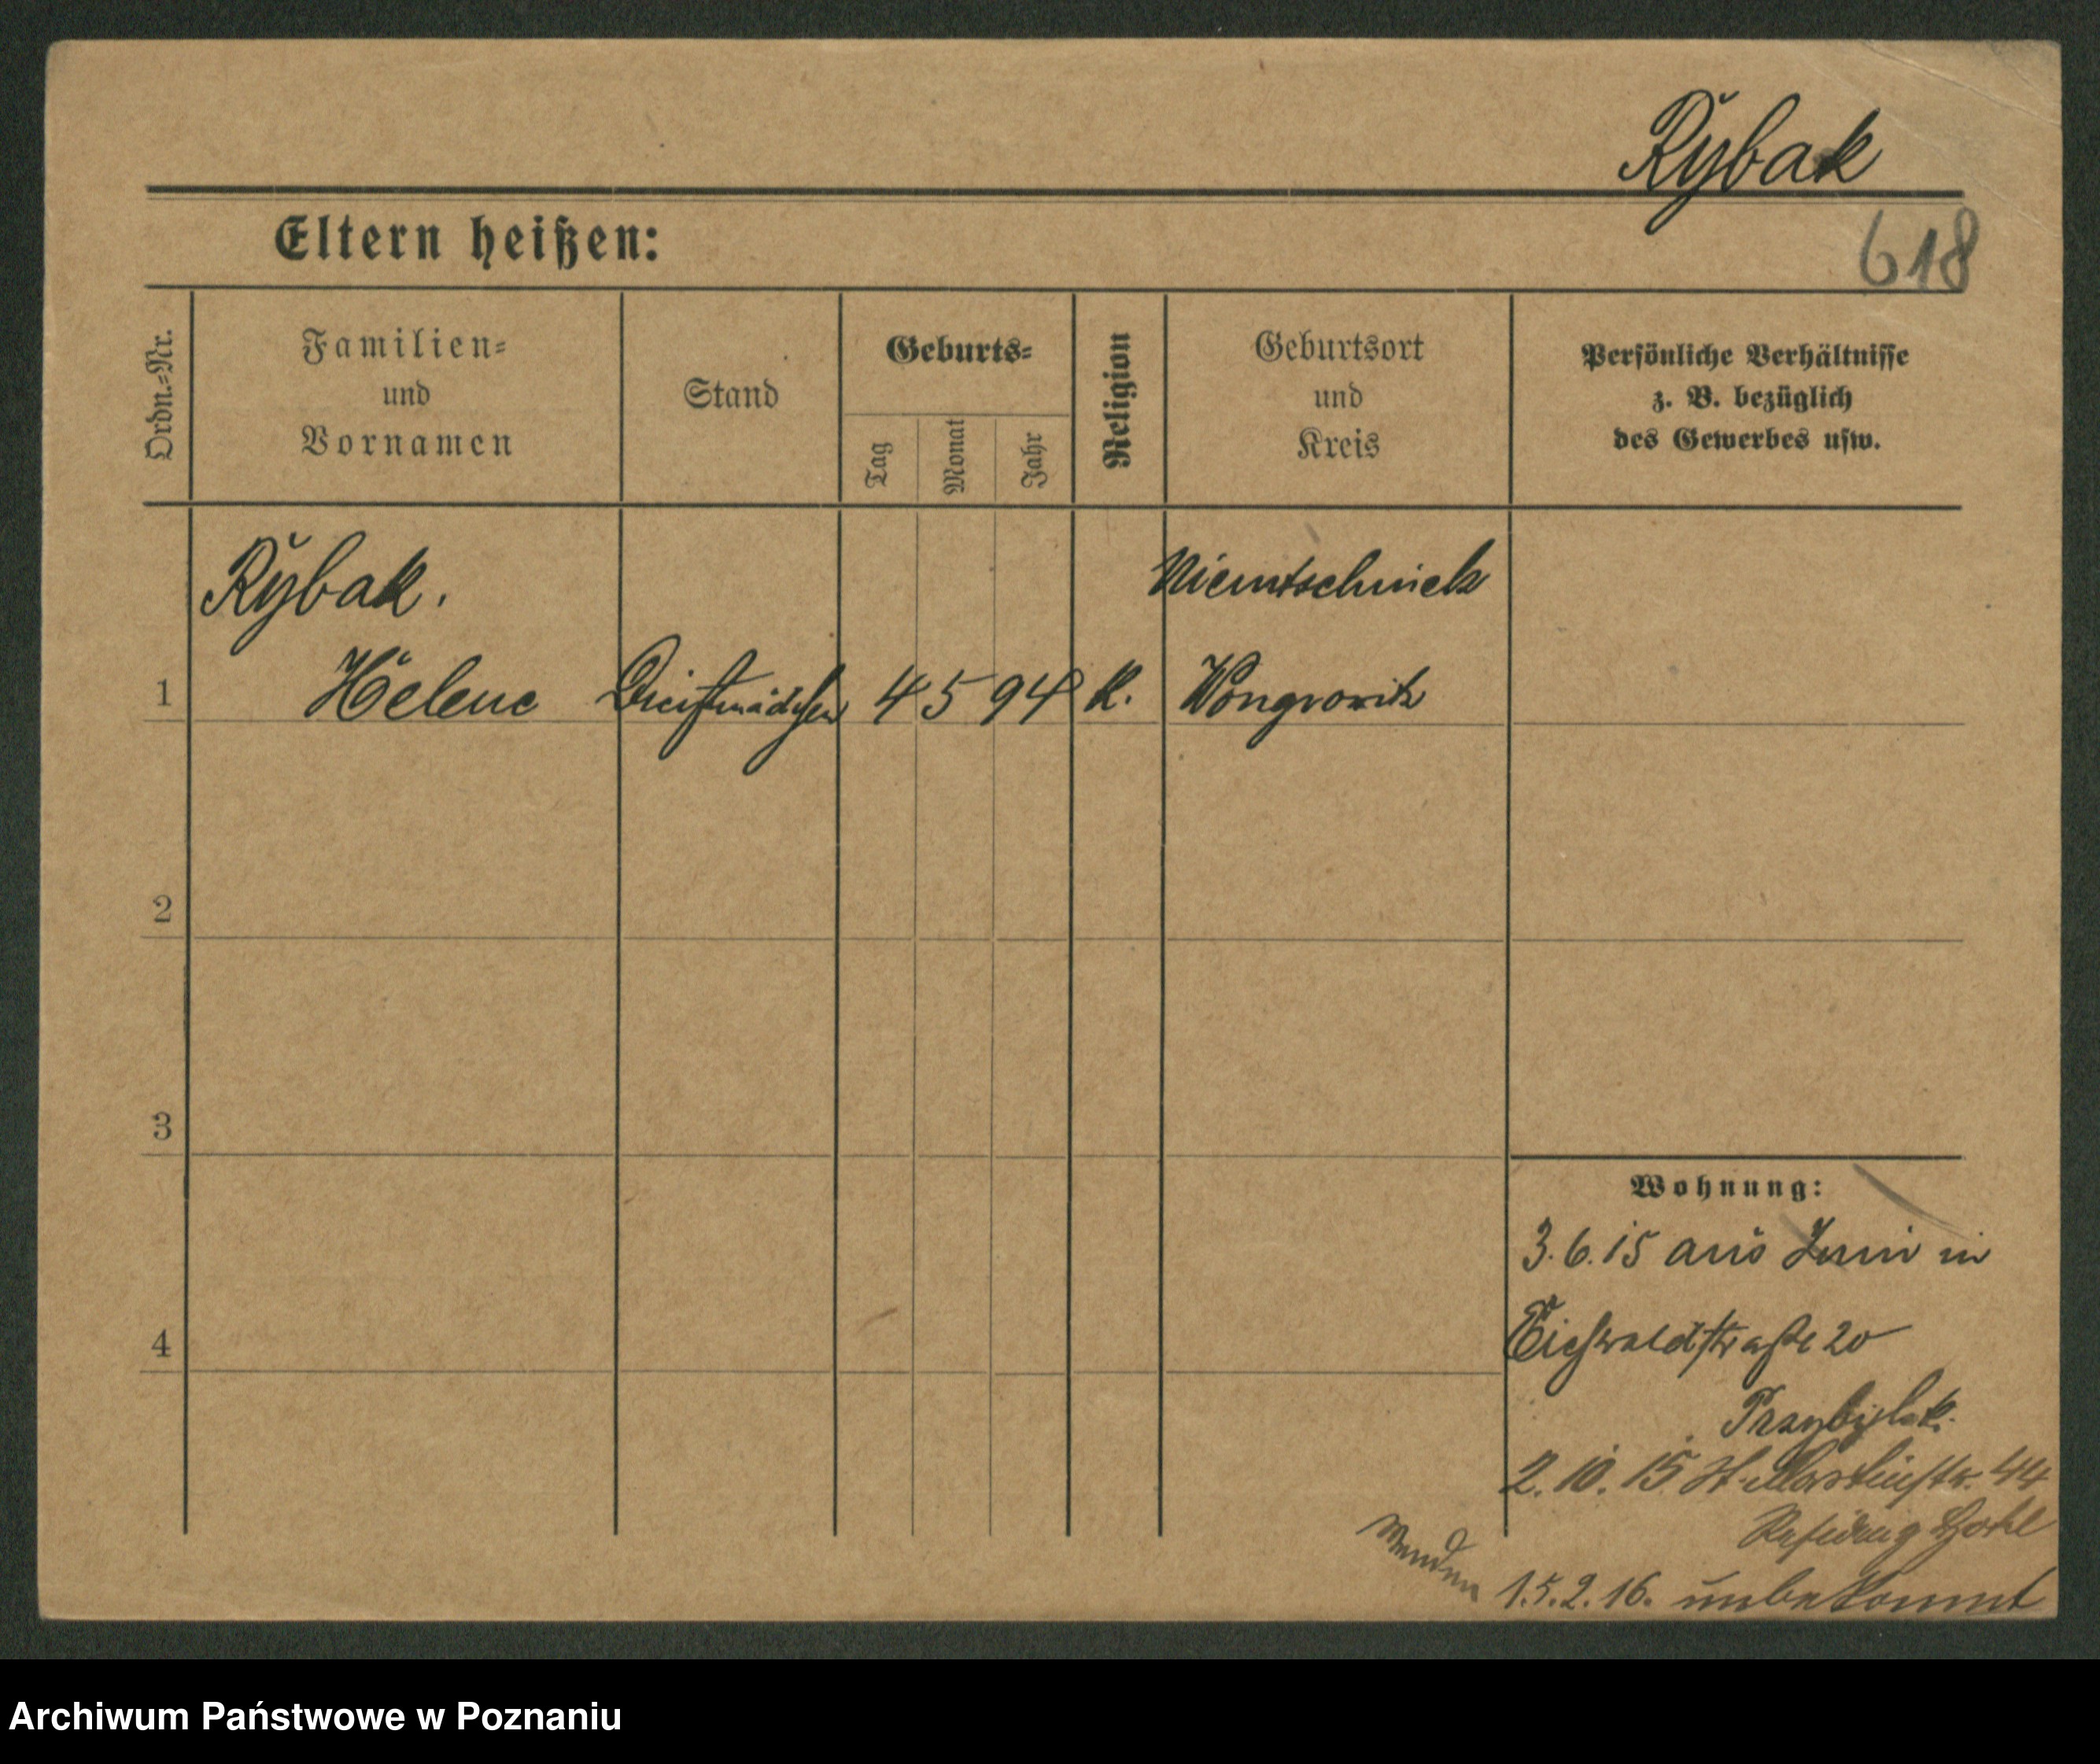 Rybak
618
Eltern heißen:
Ordn.-Nr.
Familien-
und
Vornamen
Stand
Geburts-
Tag
Monat
Jahr
Religion
Geburtsort
und
Kreis
Persönliche Verhältnisse
z. B. bezüglich
des Gewerbes usw.
Rybak.
Helene
Dienstmädchen
4 5 94
K.
Wongrowitz
1
2
3
4
Wohnung:
3.6.15 aus in
Eichwaldstraße 20
Przybylak.
2.10.15 St. Martinstr. 44
15.2.16. unbekannt
Wenden
Archiwum Państwowe w Poznaniu